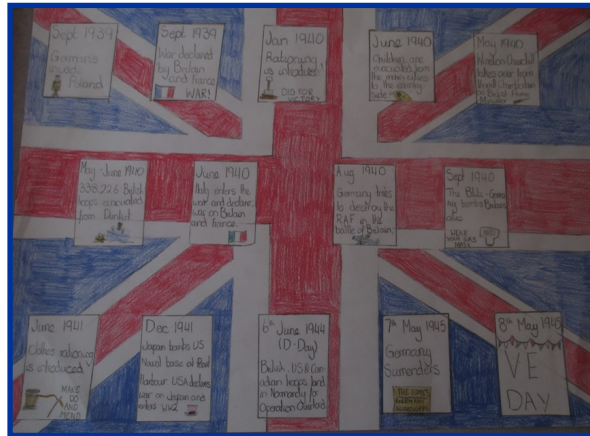 Sept 1939
Germans
invade
Poland
Sept 1939
War declared
by Britain
and France
WAR!
Jan 1940
Rationing
is introduced!
DIG FOR
VICTORY
June 1940
Children are
evacuated from
the main cities
to the country-
side
May 1940
Winston Churchill
takes over from
Chamberlain
as British Prime
Minister
May - June 1940
338,226 British
troops evacuated
from Dunkirk
June 1940
Italy enters the
war and declares
war on Britain
and France.
Aug 1940
Germany tries
to destroy the
RAF in the
battle of Britain.
Sept 1940
The Blitz - Germa
ny bombs Britains
cities
WEAR
YOUR GAS
MASK
June 1941
Clothes rationing
is introduced
MAKE
DO
AND
MEND
Dec 1941
Japan bombs US
Naval base at Pearl
Harbour USA declares
war on Japan and
enters WW2
6th June 1944
(D-Day)
British, US & Can
adian troops land
in Normandy for
Operation Overlord.
7th May 1945
Germany
Surrenders
THE TIMES
GERMANY
8th May 1945
VE
DAY